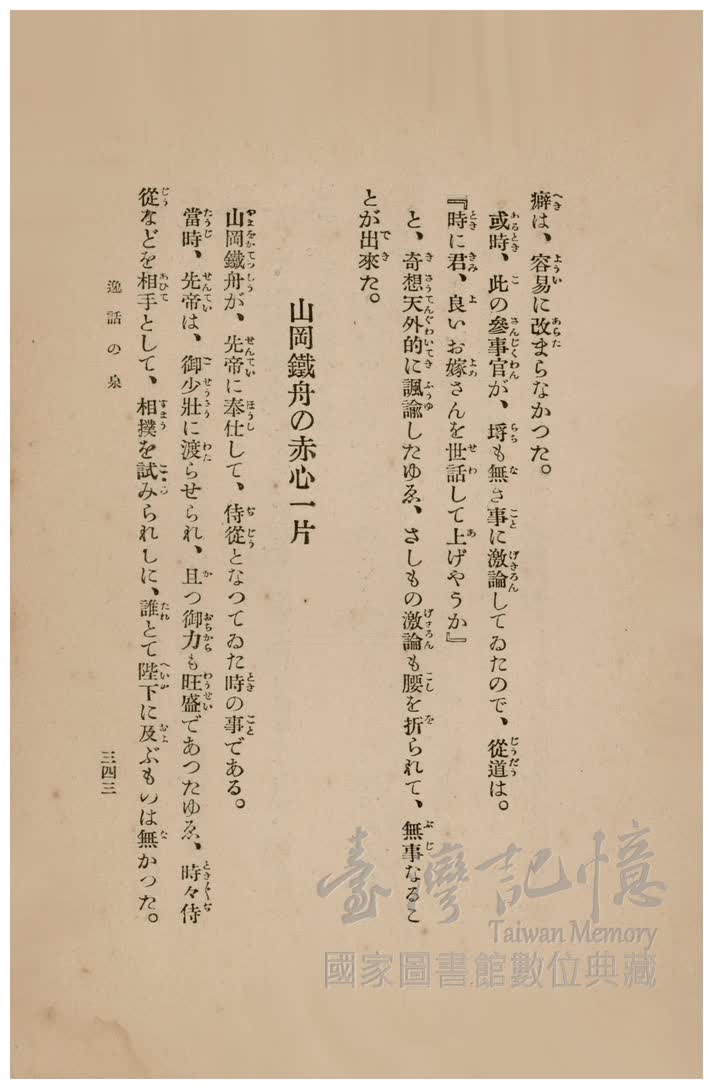 癖は、容易に改まらなかつた。
或時、此の參事官が、埒も無き事に激論してゐたので、從道は。
『時に君、良いお嫁さんを世話して上げやうか』
と、奇想天外的に諷諭したゆゑ、さしもの激論も腰を折られて、無事なるこ
とが出來た。
山岡鐵舟の赤心一片
山岡鐵舟が、先帝に奉仕して、侍從となつてゐた時の事である。
當時、先帝は、御少壯に渡らせられ、且つ御力も旺盛であつたゆゑ、時々侍
從などを相手として、相撲を試みられしに、誰とて陛下に及ぶものは無かつた。
逸話の泉
三四三
臺灣記憶
Taiwan Memory
國家圖書館數位典藏